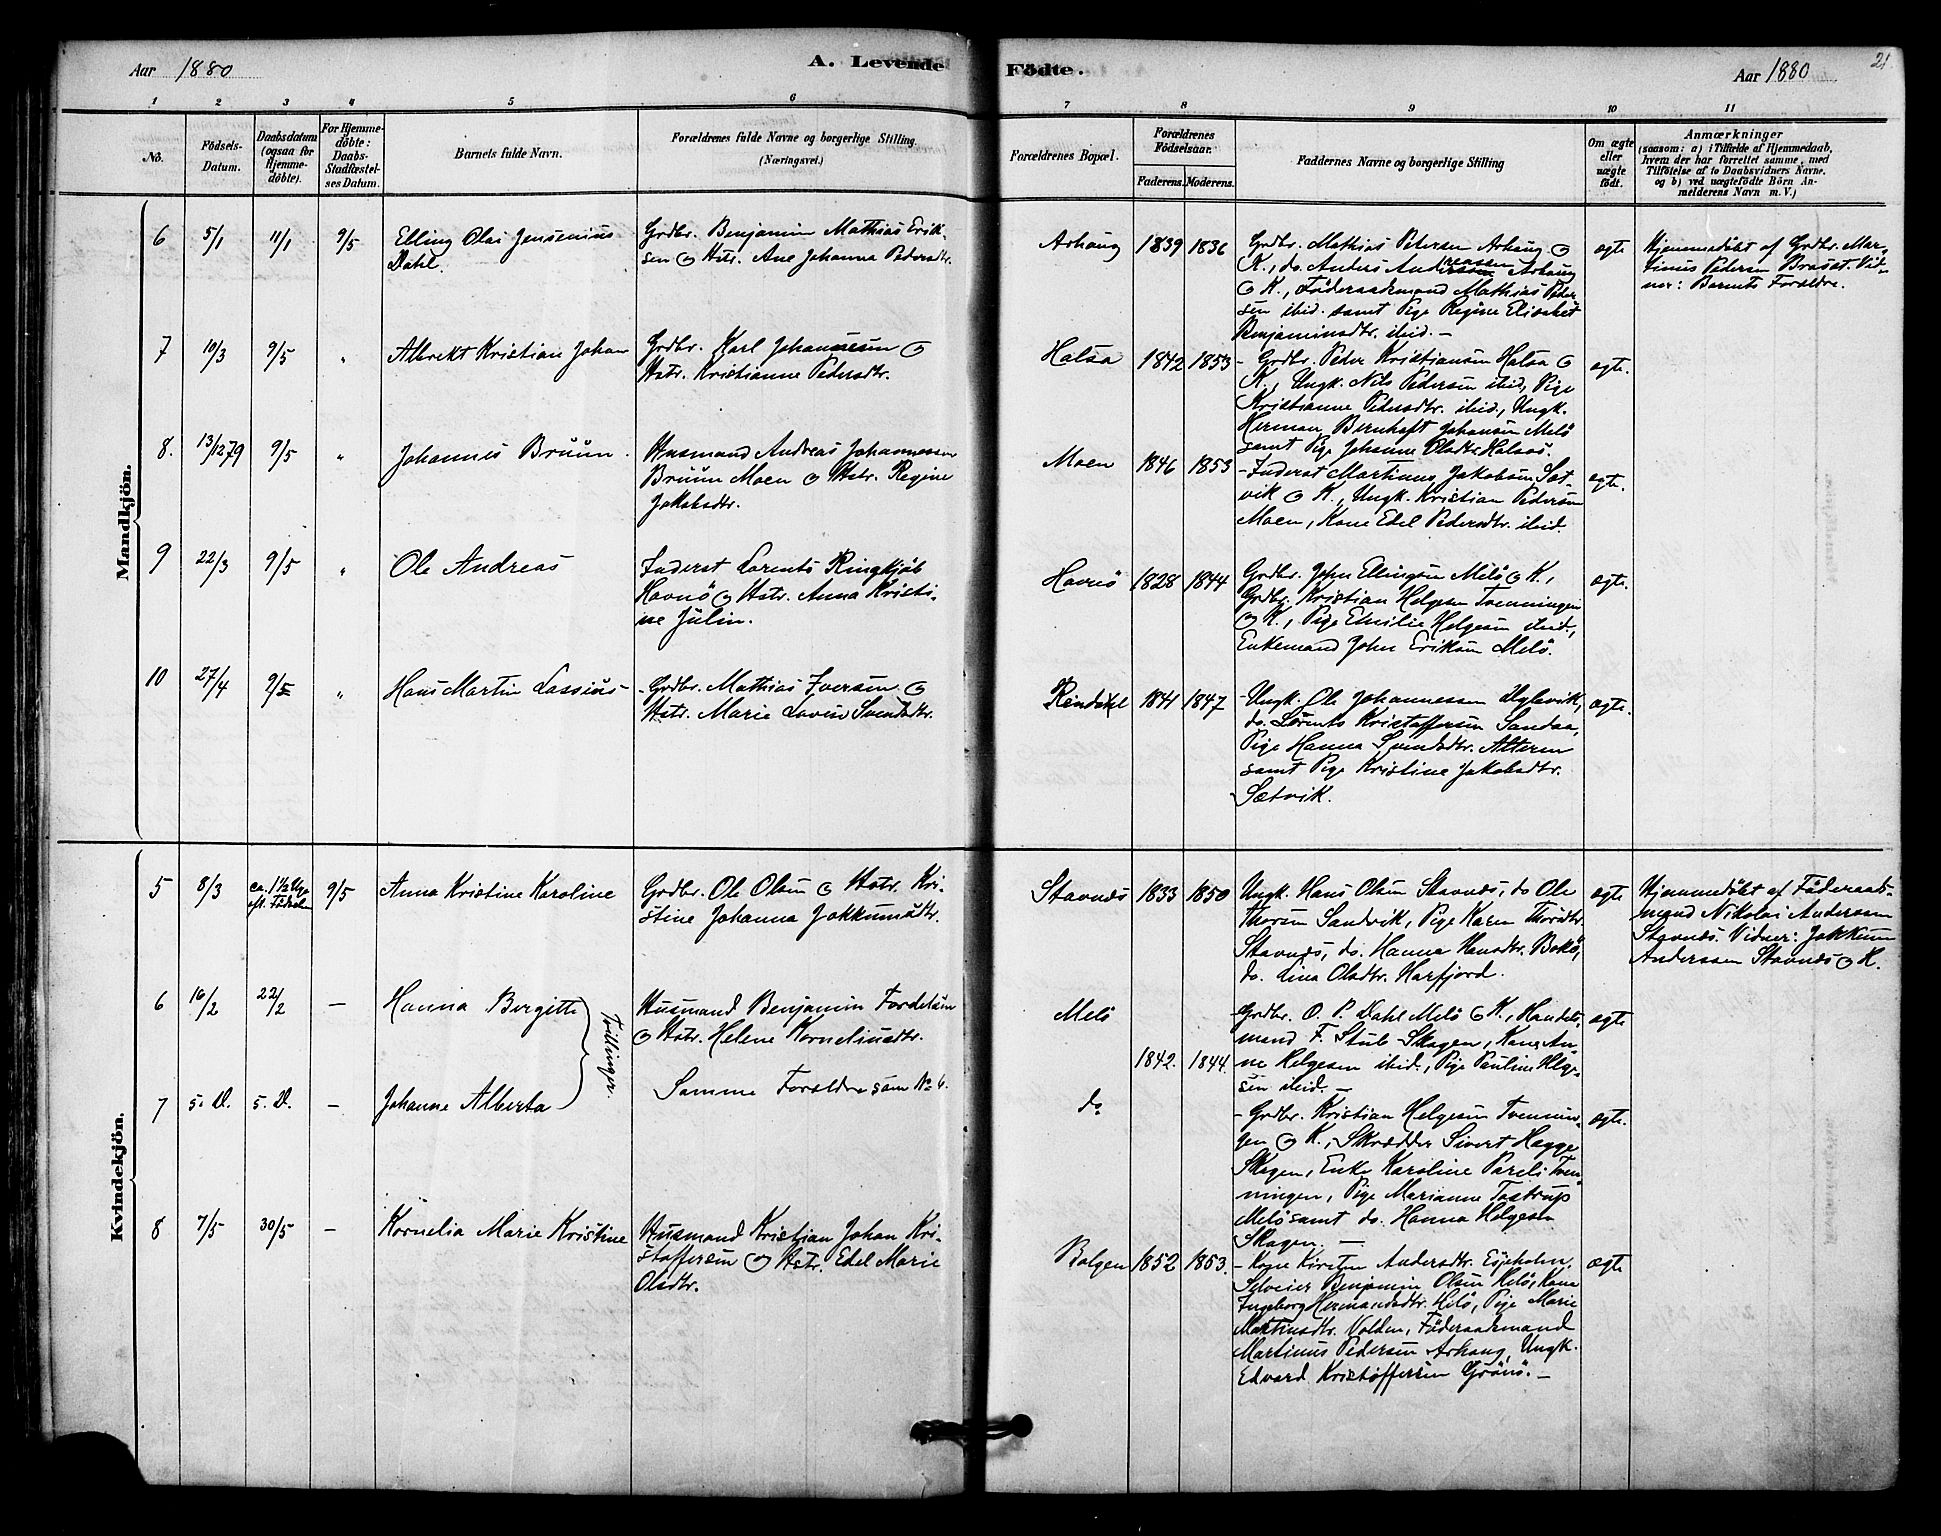 Aar 1880
A. Levende Födte.
Aar 1880
21.
1 2 3 4 5 6 7 8 9 10 11
No.
Födsels-
Datum.
Daabsdatum
(ogsaa for
Hjemme-
döbte).
For Hjemme-
döbte:
Daabs-
Stadfæstel-
ses Datum.
Barnets fulde Navn.
Forældrenes fulde Navne og borgerlige Stilling
(Næringsvei.)
Forældrenes Bopæl.
Forældrenes
Födselsaar.
Faderens. Moderens.
Faddernes Navne og borgerlige Stilling
Om ægte
eller
uægte
födt.
Anmærkninger
(saasom: a) i Tilfælde af Hjemmedaab,
hvem der har forrettet samme, med
Tilföielse af to Daabsvidners Navne,
og b) ved uægtefödte Börn An-
melderens Navn m. V.)
Mandkjön.
6
5/1
11/1
9/5
Elling Olai Jensenius
Dahl.
Grdbr. Benjamin Mathias Erik-
sen og Hstr. Ane Johanna Pedersdtr.
Arhaug
1839
1836
Grdbr. Mathias Petersen Arhaug og
K., do. Anders Andreassen Arhaug
og K., Föderaadsmand Mathias Peder
sen ibid. samt Pige Regine Elisabet
Benjaminsdtr. ibid. —
ægte
Hjemmedöbt af Grdbr. Mar-
tinus Pedersen Brasat. Vid-
ner: Barnets Forældre.
7
10/3
9/5
"
Albrekt Kristian Johan
Grdbr. Karl Johannesen og
Hstr. Kristianne Pedersdtr.
Halsa
1842
1853
- Grdbr. Peder Kristiansen Halsa og
K., Ungk. Nils Pedersen ibid., Pige
Kristianne Pedersdtr. ibid., Ungk.
Herman Bernhoft Johansen Melö
samt Pige Johanne Olsdtr. Halsos.
ægte.
8.
13/12 79
9/5
"
Johannes Brüün.
Husmand Andreas Johannessen
Brüün Moen og Hstr. Regine
Jakobsdtr.
Moen
1846
1853
- Inderst Martinus Jakobsen Sæt-
vik og K., Ungk. Kristian Pedersen
Moen, Kone Edel Pedersdtr. ibid.
ægte.
9
22/3
9/5
"
Ole Andreas
Inderst Lorents Ringkjöb
Havnö og Hstr. Anna Kristi-
ne Julin.
Havnö
1828
1844
Grdbr. John Ellingsen Melö og K.,
Grdbr. Kristian Helgesen Tvenningen
og K., Pige Emilie Helgesen ibid.,
Enkemand John Eriksen Melö.
ægte.
10
27/4
9/5
"
Hans Martin Lassius
- Grdbr. Mathias Iversen og
Hstr. Marie Lovise Svendsdtr.
Reindal
1841
1847
- Ungk. Ole Johannessen Uglevik,
do. Lorents Kristoffersen Sandaa,
Pige Hanna Svendsdtr. Alteren
samt Pige Kristine Jakobsdtr.
Sætvik.
ægte.
Kvindekjön.
5
8/3
ca. 1 1/2 Uge
eft. Födselen
9/5
Anna Kristine Karoline
Grdbr. Ole Olsen og Hstr. Kri-
stine Johanna Jokkumsdtr.
Stavnes
1833
1850
Ungk. Hans Olsen Stavnes, do Ole
Thorsen Sandvik, Pige Karen Thorsdtr.
Stavnes, do. Hanna Hansdtr. Bokö,
do. Lina Olsdtr. Harfjord.
ægte
Hjemmedöbt af Föderaads-
mand Nikolai Anderssen
Stavnes. Vidner: Jokkum
Anderssen Stavnes og K.
6
16/2
22/2
—
Hanna Birgitte
Tvillinger.
Husmand Benjamin Fordelsen
og Hstr. Helene Korneliusdtr.
Melö
1842.
1844.
- Grdbr. O. P. Dahl Melö og K., Handels-
mand F. Stub Skagen, Kone An-
ne Helgesen ibid., Pige Pauline Helge-
sen ibid. —
ægte
7
s. D.
s. D.
—
Johanne Alberta
Samme Forældre som No 6.
do
- Grdbr. Kristian Helgesen Tvennin-
gen og K., Skrædder Sivert Hagge
Skagen, Enke Karoline Pareli Tven
ningen, Pige Marianne Tostrup
Melö samt do. Hanna Helgesen
Skagen. —
ægte.
8
7/5
30/5
—
Kornelia Marie Kristine
Husmand Kristian Johan Kri-
stoffersen og Hstr. Edel Marie
Olsdtr.
Bolgen
1852
1853.
- Kone Kirsten Andersdtr. Esjeholm,
Selveier Benjamin Olsen Melö, Kone
Ingeborg Hermansdtr. Melö, Pige Marie
Martinusdtr. Volden, Föderaadsmand
Martinus Pedersen Arhaug, Ungk.
Edvard Kristoffersen Grönö. —
ægte